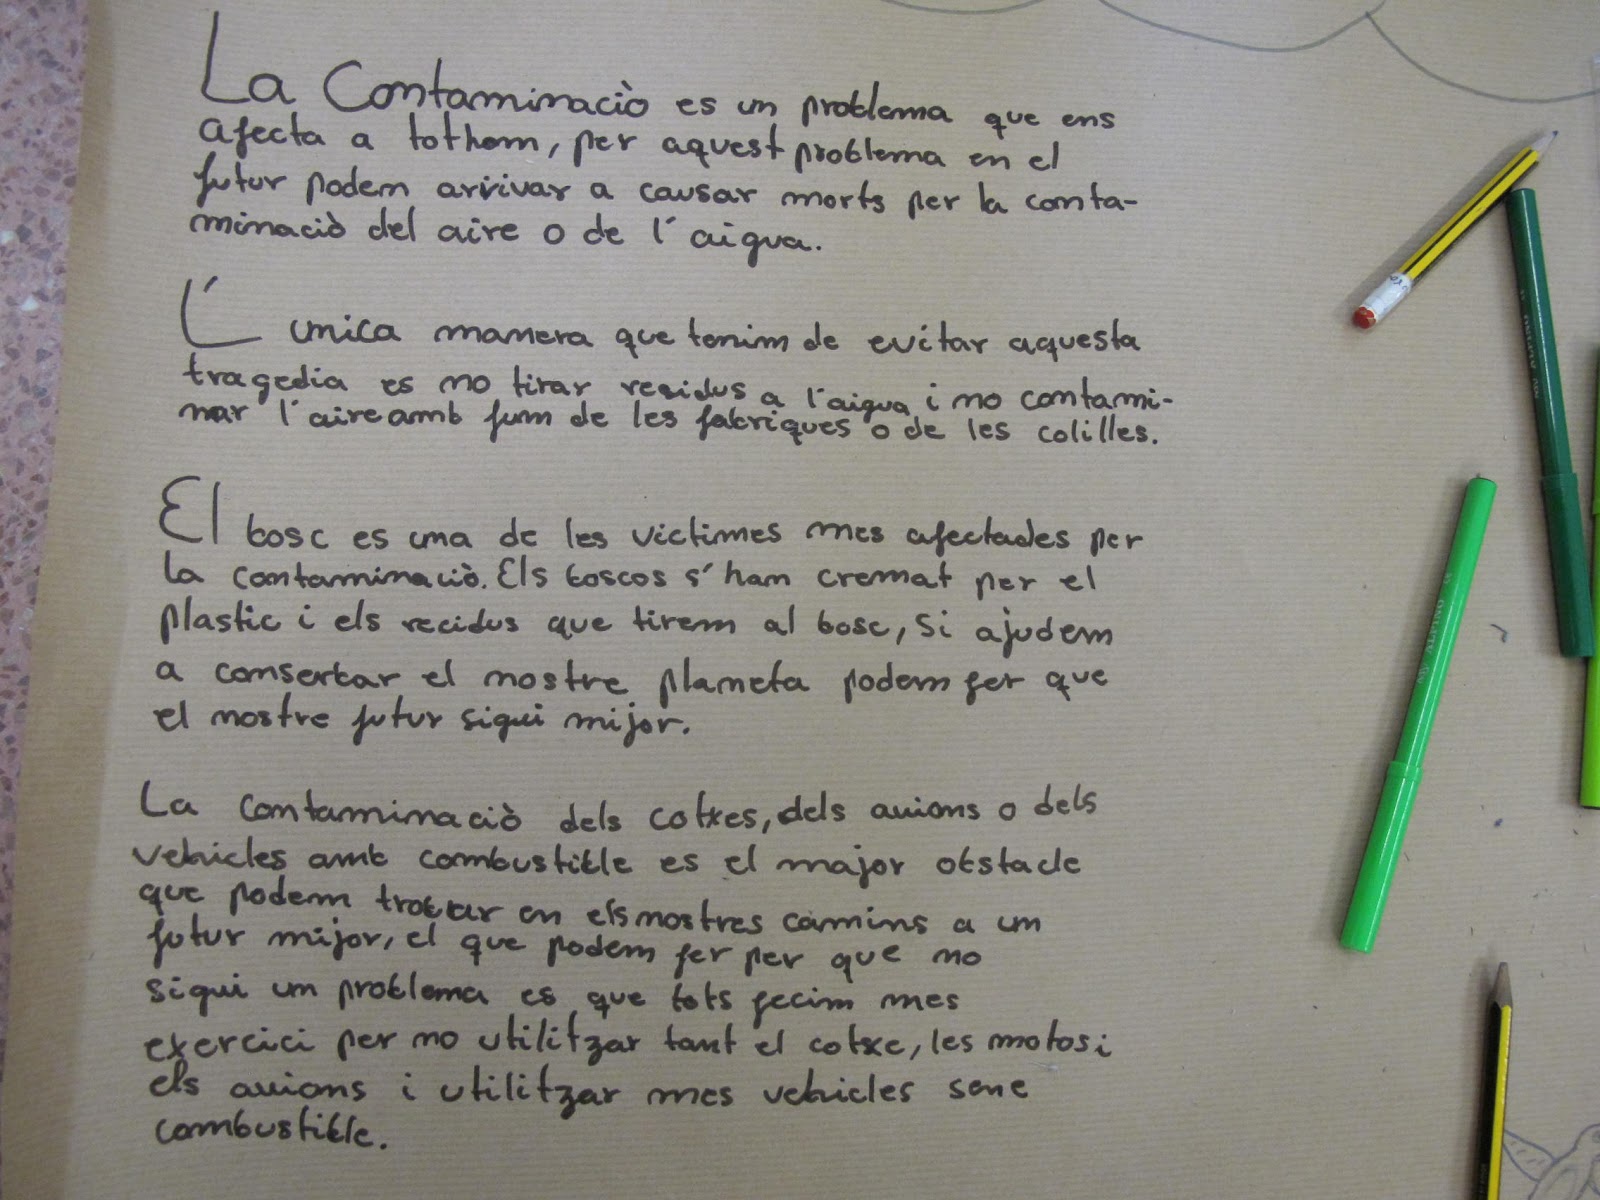 La Contaminaciò es un problema que ens
afecta a tothom, per aquest problema en el
futur podem arrivar a causar morts per la conta-
minaciò del aire o de l'aigua.
L' unica manera que tenim de evitar aquesta
tragedia es no tirar residus a l'aigua i no contami-
nar l'aire amb fum de les fabriques o de les colilles.
El bosc es una de les victimes mes afectades per
la contaminaciò. Els boscos s'han cremat per el
plastic i els recidus que tirem al bosc, Si ajudem
a conserbar el nostre planeta podem fer que
el nostre futur sigui mijor.
La contaminaciò dels cotxes, dels avions o dels
vehicles amb combustible es el major obstacle
que podem trobar en els nostres camins a un
futur mijor, el que podem fer per que no
sigui un problema es que tots fecim mes
exercici per no utilitzar tant el cotxe, les motos i
els avions i utilitzar mes vehicles sene
combustible.